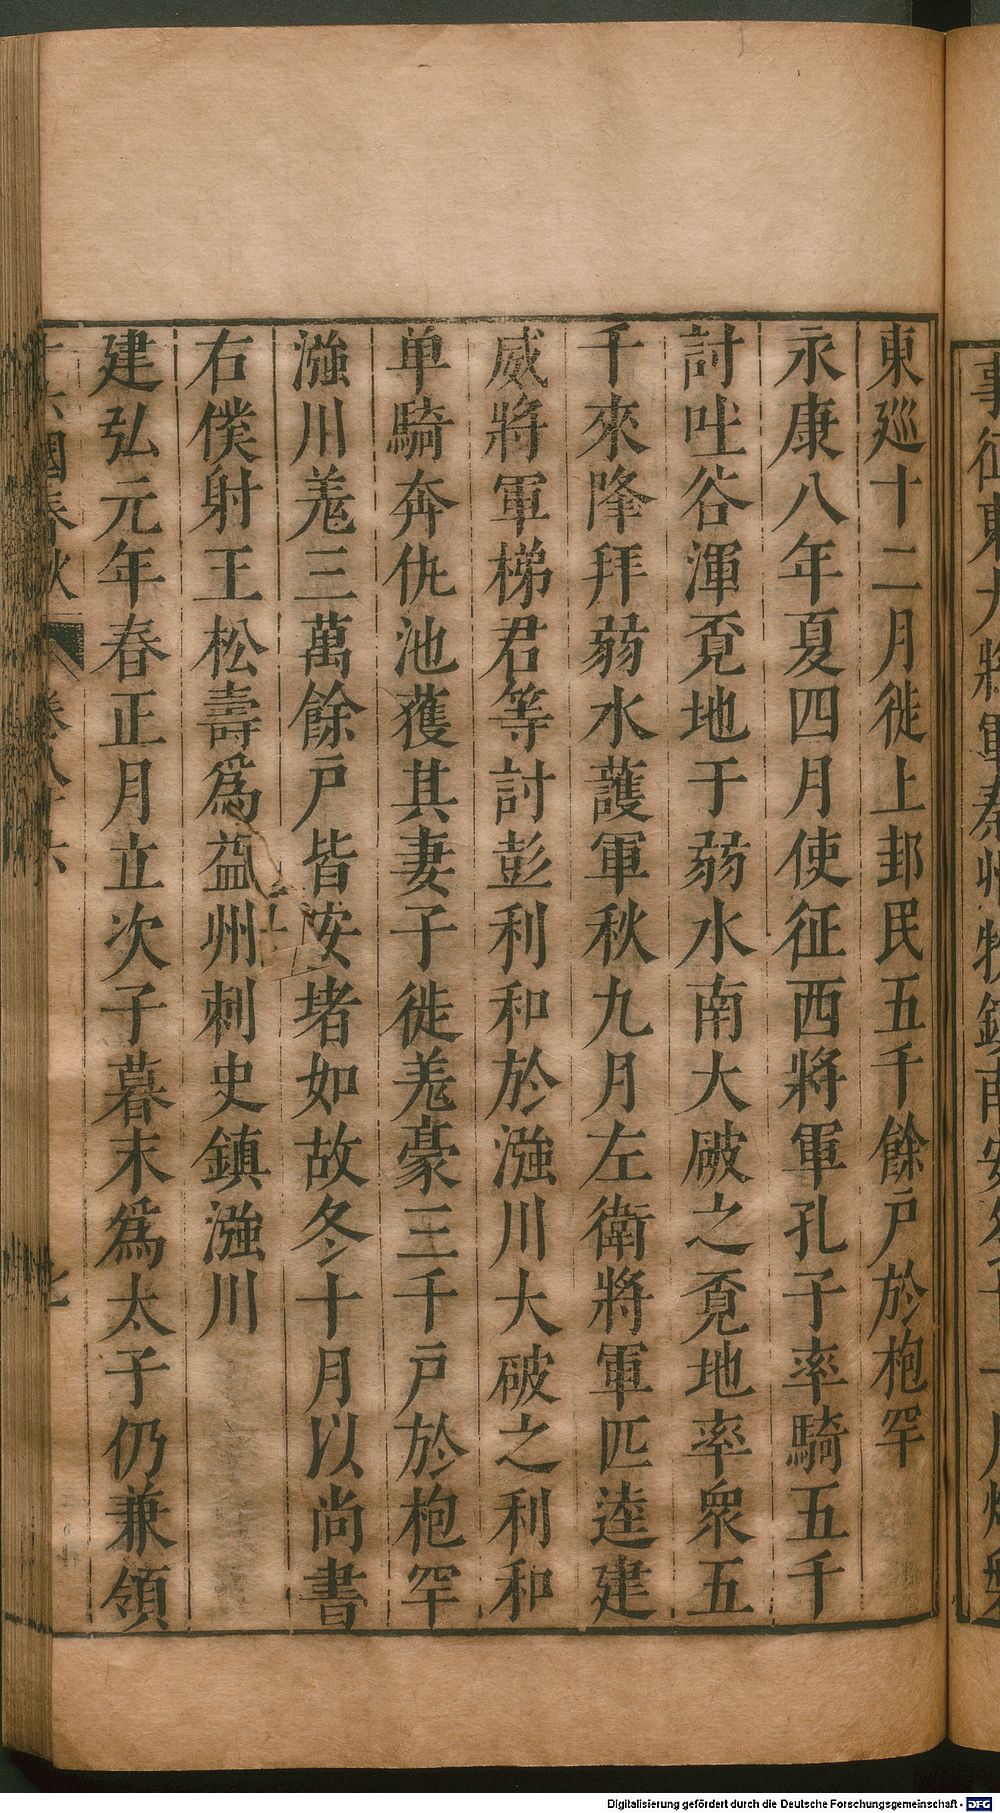 東巡十二月徙上邽民五千餘戶於枹罕
永康八年夏四月使征西將軍孔子率騎五千
討吐谷渾覓地于弱水南大破之覓地率衆五
千來降拜弱水護軍秋九月左衛將軍匹逵建
威將軍梯君等討彭利和於漒川大破之利和
单騎奔仇池獲其妻子徙羗豪三千戶於枹罕
漒川羗三萬餘戶皆安堵如故冬十月以尚書
右僕射王松壽爲益州刺史鎮漒川
建弘元年春正月立次子暮末爲太子仍兼領
國春秋
Digitalisierung gefördert durch die Deutsche Forschungsgemeinschaft - DFG